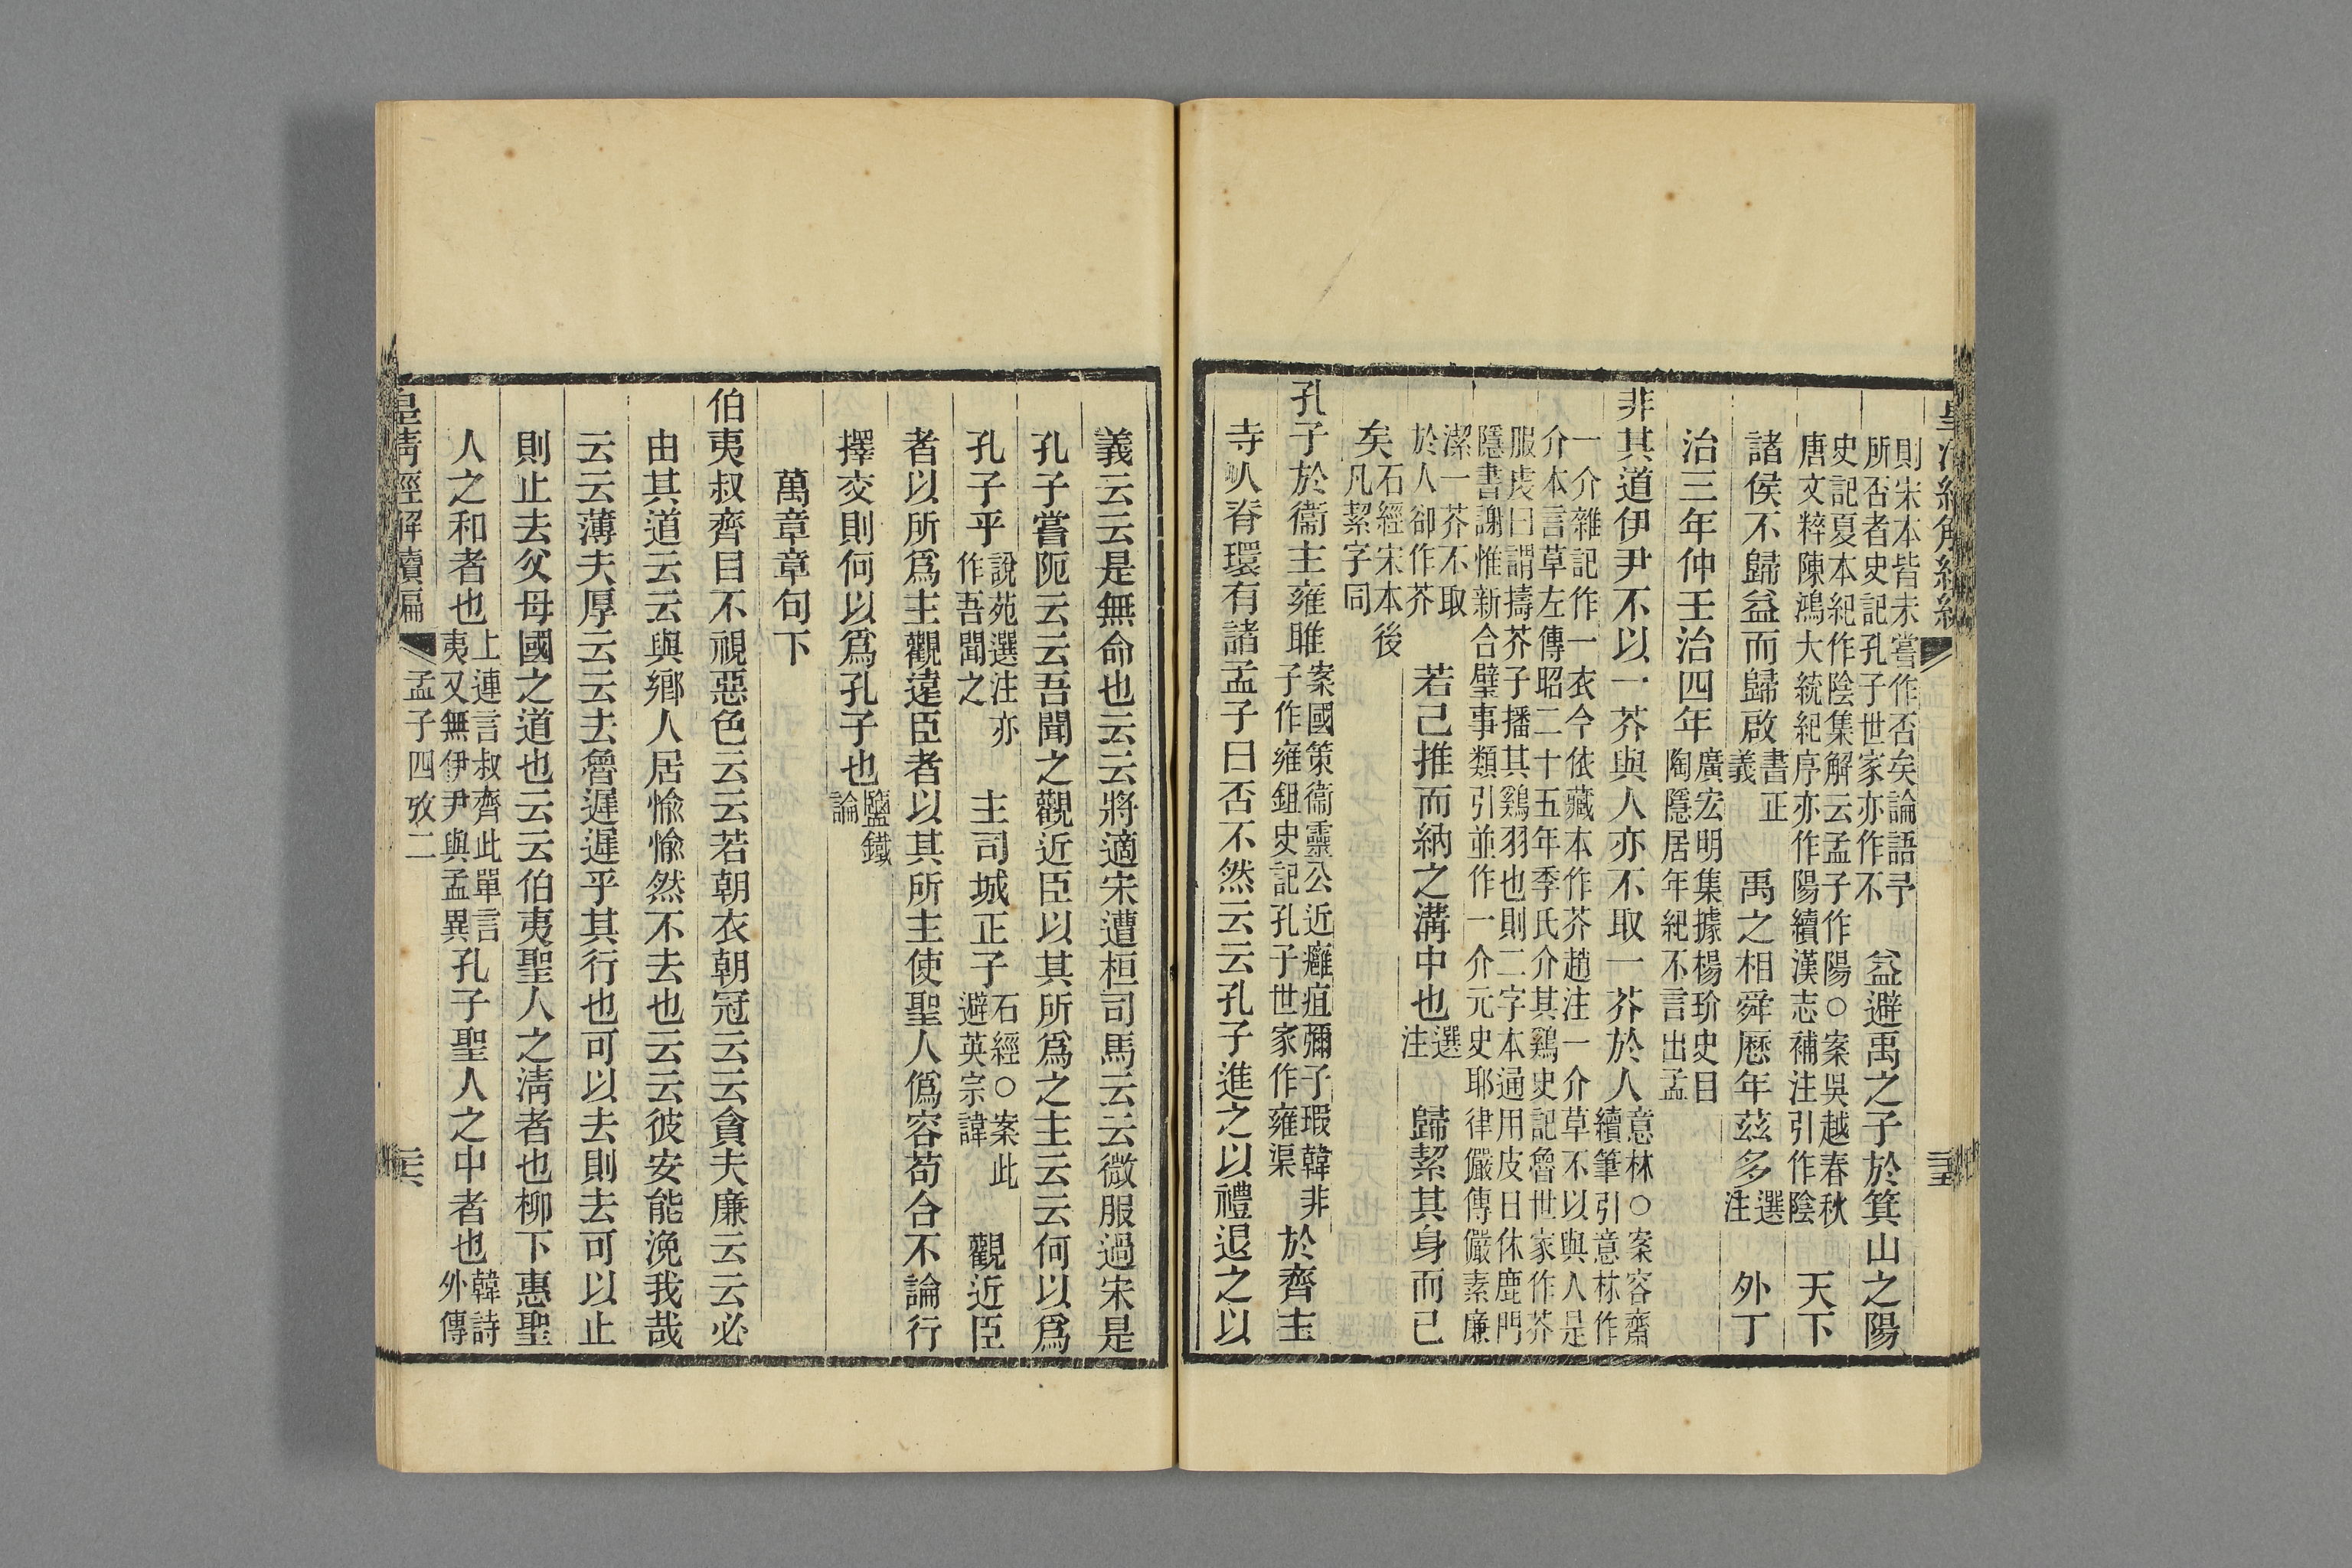 皇清經解續編
則宋本皆未嘗作否矣論語予
所否者史記孔子世家亦作不
益避禹之子於箕山之陽
史記夏本紀作陰集解云孟子作陽○案吳越春秋
唐文粹陳鴻大統紀序亦作陽續漢志補注引作陰
天下
諸侯不歸益而歸啟
書正
義
禹之相舜歷年茲多
選
注
外丁
治三年仲壬治四年
廣宏明集據楊玠史目
陶隱居年紀不言出孟
非其道伊尹不以一芥與人亦不取一芥於人
意林○案容齋
續筆引意林作
一介雜記作一衣今依藏本作芥趙注一介草不以與人是
介本言草左傳昭二十五年季氏介其鷄史記魯世家作芥
服虔曰謂擣芥子播其鷄羽也則二字本通用皮日休鹿門
隱書謝惟新合璧事類引並作一介元史耶律儼傳儼素廉
潔一芥不取
於人卻作芥
若己推而納之溝中也
選
注
歸絜其身而已
矣
石經宋本後
凡絜字同
孔子於衞主雍雎
案國策衞靈公近癰疽彌子瑕韓非
子作雍鉏史記孔子世家作雍渠
於齊主
寺人脊環有諸孟子曰否不然云云孔子進之以禮退之以
義云云是無命也云云將適宋遭桓司馬云云微服過宋是
孔子嘗阨云云吾聞之觀近臣以其所爲之主云云何以爲
孔子乎
說苑選注亦
作吾聞之
主司城正子
石經○案此
避英宗諱
觀近臣
者以所爲主觀遠臣者以其所主使聖人僞容苟合不論行
擇交則何以爲孔子也
鹽鐵
論
萬章章句下
伯夷叔齊目不視惡色云云若朝衣朝冠云云貪夫廉云云必
由其道云云與鄉人居愉愉然不去也云云彼安能浼我哉
云云薄夫厚云云去魯遲遲乎其行也可以去則去可以止
則止去父母國之道也云云伯夷聖人之清者也柳下惠聖
人之和者也
上連言叔齊此單言
夷又無伊尹與孟異
孔子聖人之中者也
韓詩
外傳
皇清經解續編
孟子四攷二